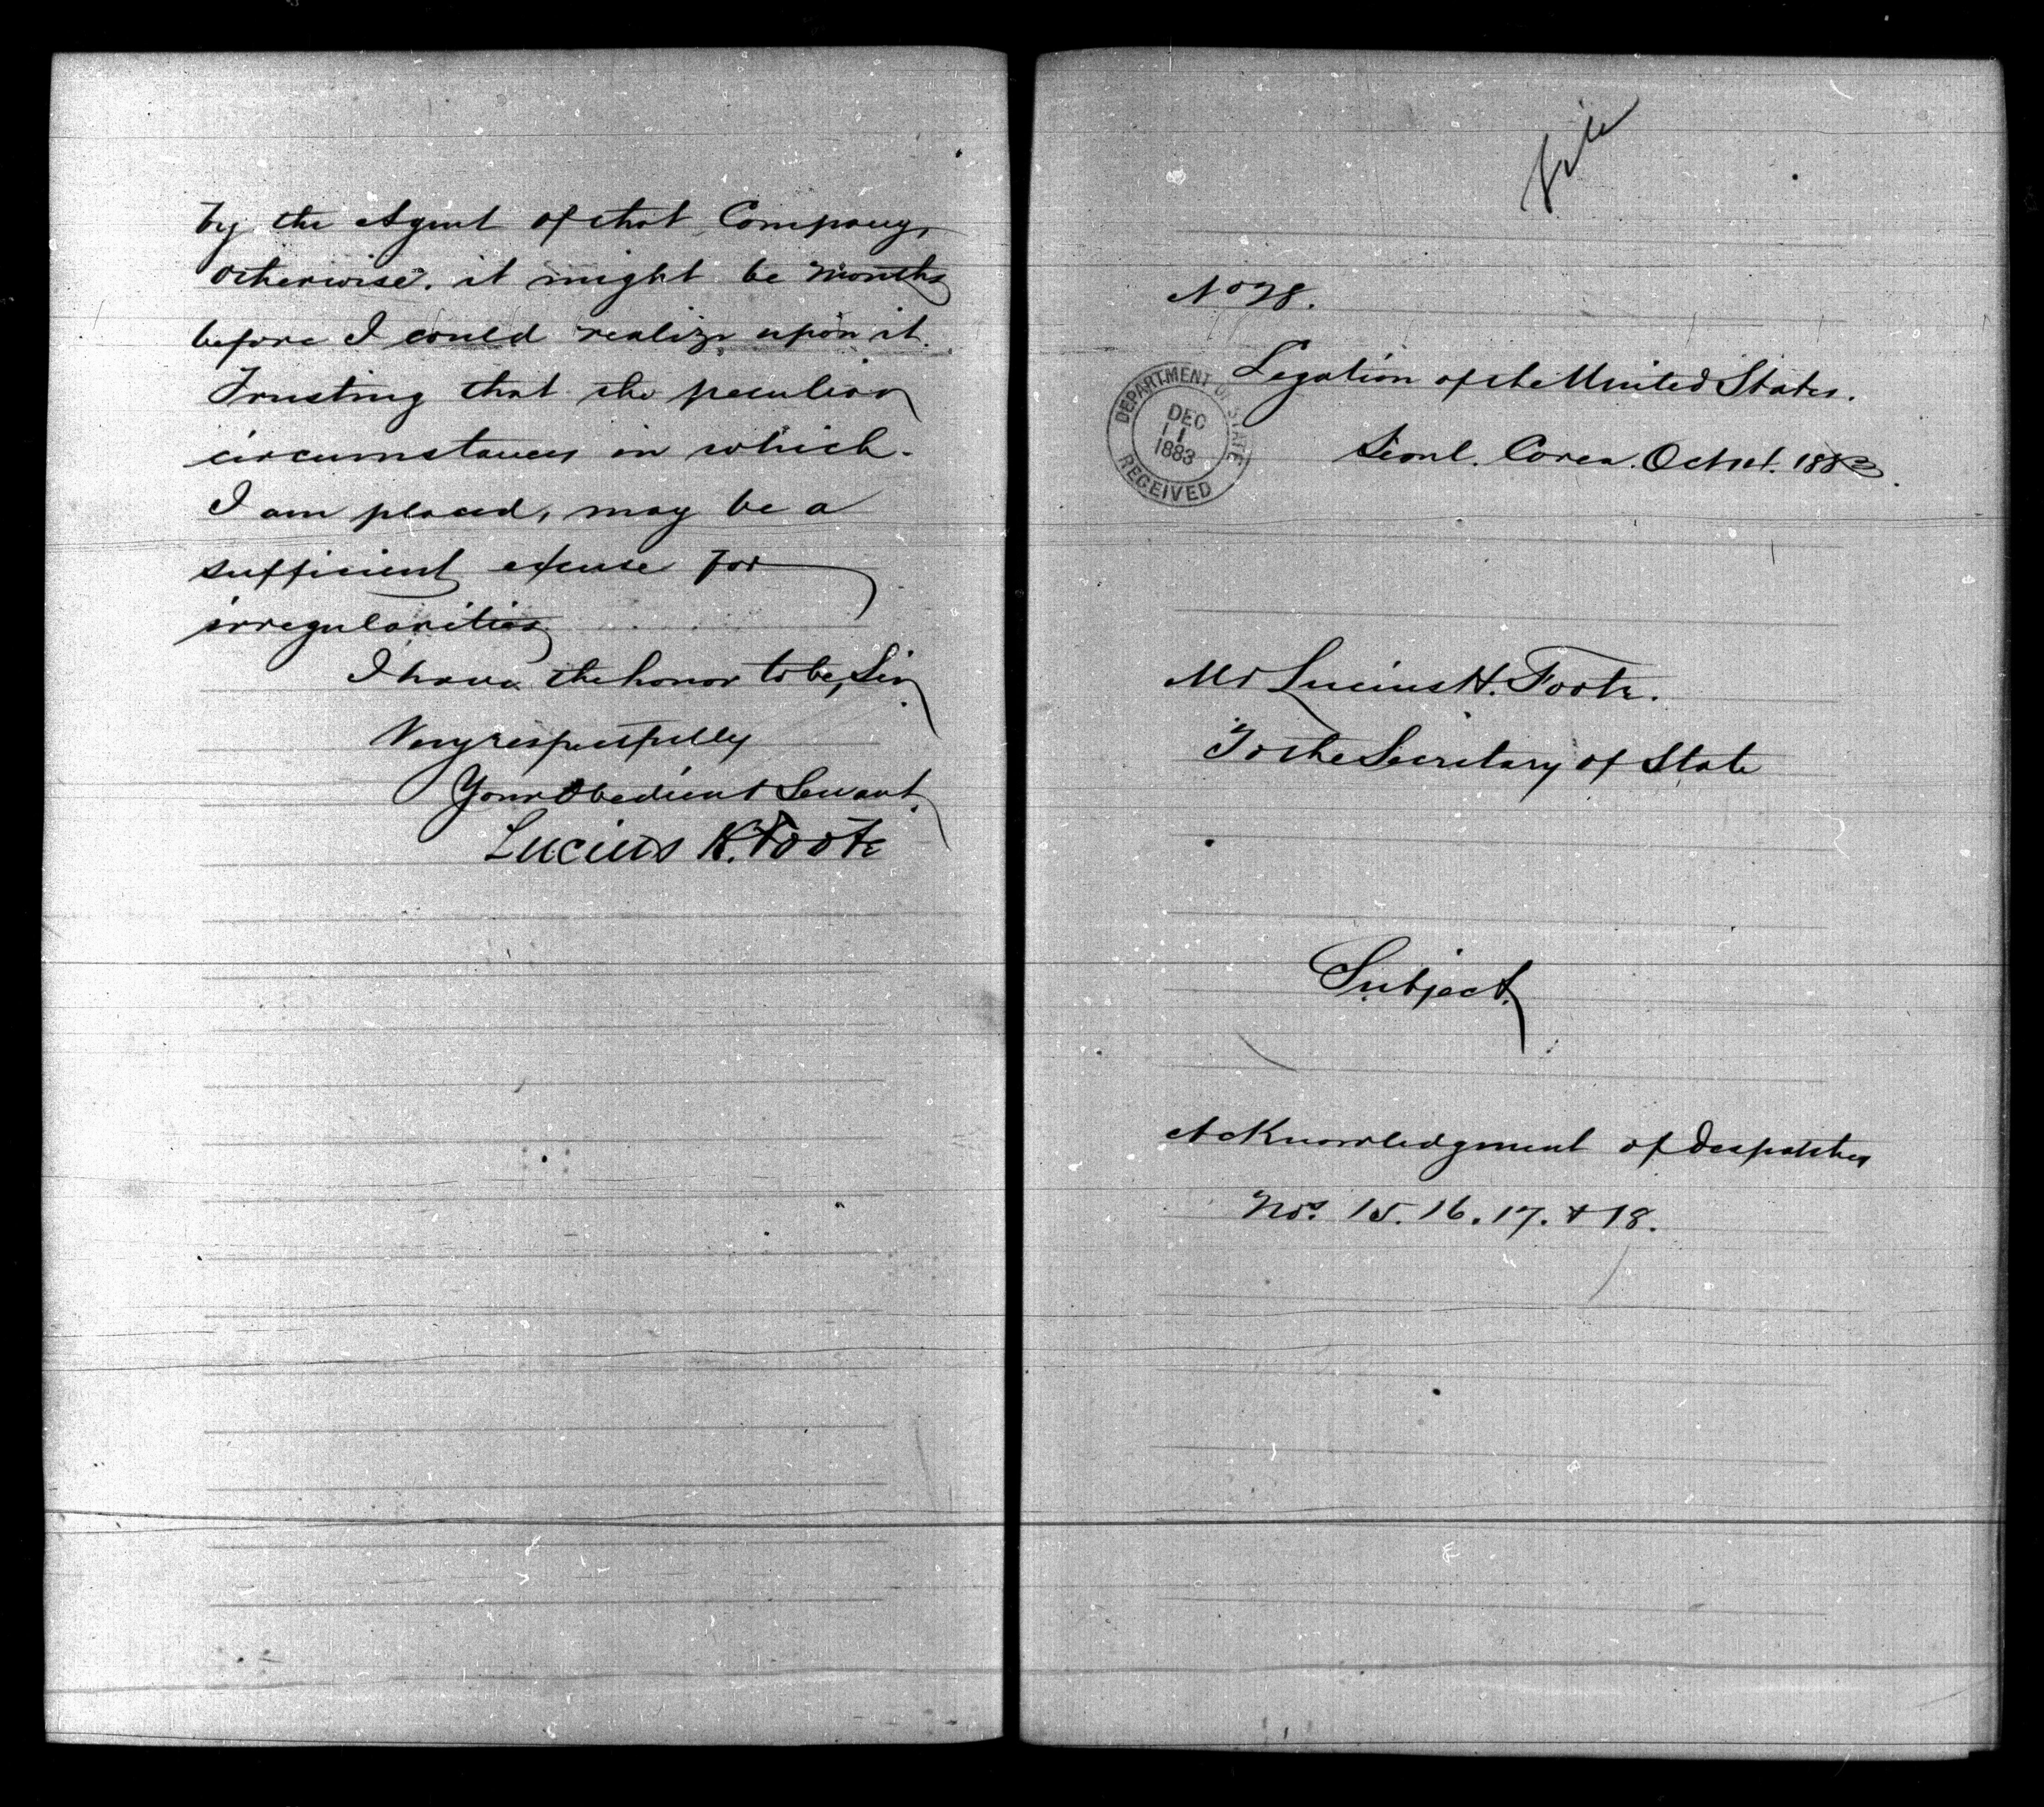 by the Agent of that Company,
otherwise, it might be months
before I could realize upon it.
Trusting that the peculiar
circumstances in which
I am placed, may be a
sufficient excuse for
irregularities.
I have the honor to be, Sir,
Very respectfully
Your Obedient Servant.
Lucius H. Foote
file
No 28.
Legation of the United States.
DEPARTMENT OF STATE
DEC
11
1883
RECEIVED
Seoul. Corea. Oct 1883.
Mr Lucius H. Foote.
To the Secretary of State
Subject.
Acknowledgment of Despatches
Nos. 15. 16. 17. + 18.